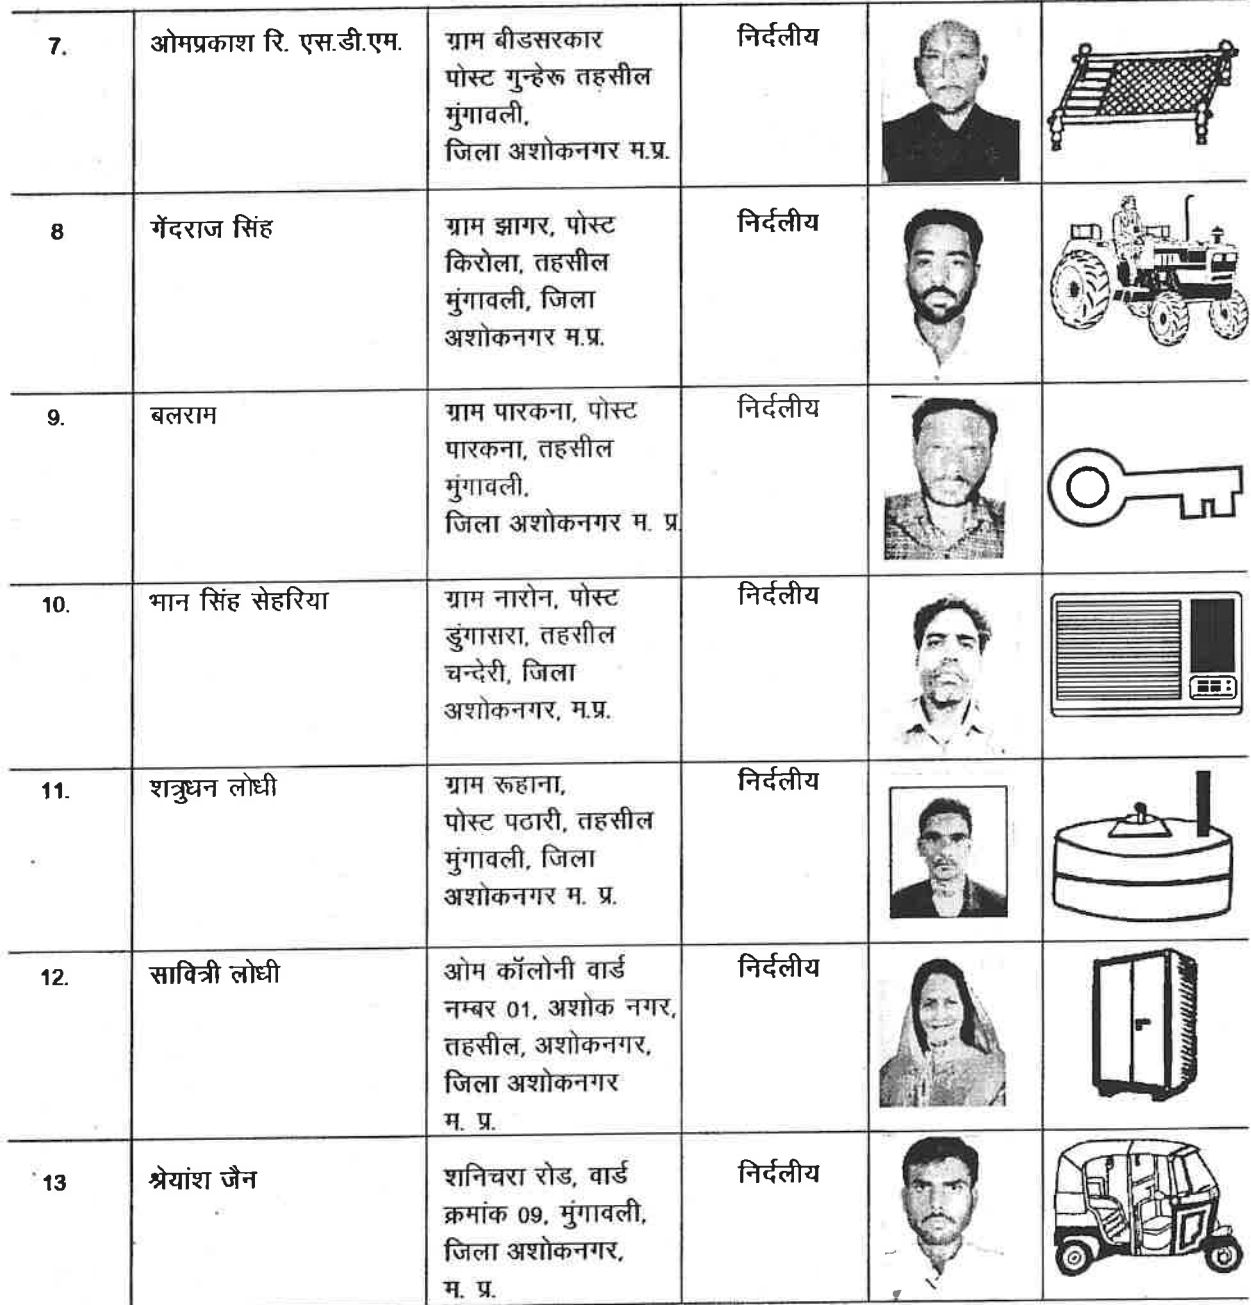 7.
ओमप्रकाश रि. एस.डी.एम.
ग्राम बीडसरकार
पोस्ट गुन्हेरू तहसील
मुंगावली,
जिला अशोकनगर म.प्र.
निर्दलीय
8
गेंदराज सिंह
ग्राम झागर, पोस्ट
किरोला, तहसील
मुंगावली, जिला
अशोकनगर म.प्र.
निर्दलीय
9.
बलराम
ग्राम पारकना, पोस्ट
पारकना, तहसील
मुंगावली,
जिला अशोकनगर म. प्र.
निर्दलीय
10.
भान सिंह सेहरिया
ग्राम नारोन, पोस्ट
डुंगासरा, तहसील
चन्देरी, जिला
अशोकनगर, म.प्र.
निर्दलीय
11.
शत्रुधन लोधी
ग्राम रूहाना,
पोस्ट पठारी, तहसील
मुंगावली, जिला
अशोकनगर म. प्र.
निर्दलीय
12.
सावित्री लोधी
ओम कॉलोनी वार्ड
नम्बर 01, अशोक नगर,
तहसील, अशोकनगर,
जिला अशोकनगर
म. प्र.
निर्दलीय
13
श्रेयांश जैन
शनिचरा रोड, वार्ड
क्रमांक 09, मुंगावली,
जिला अशोकनगर,
म. प्र.
निर्दलीय